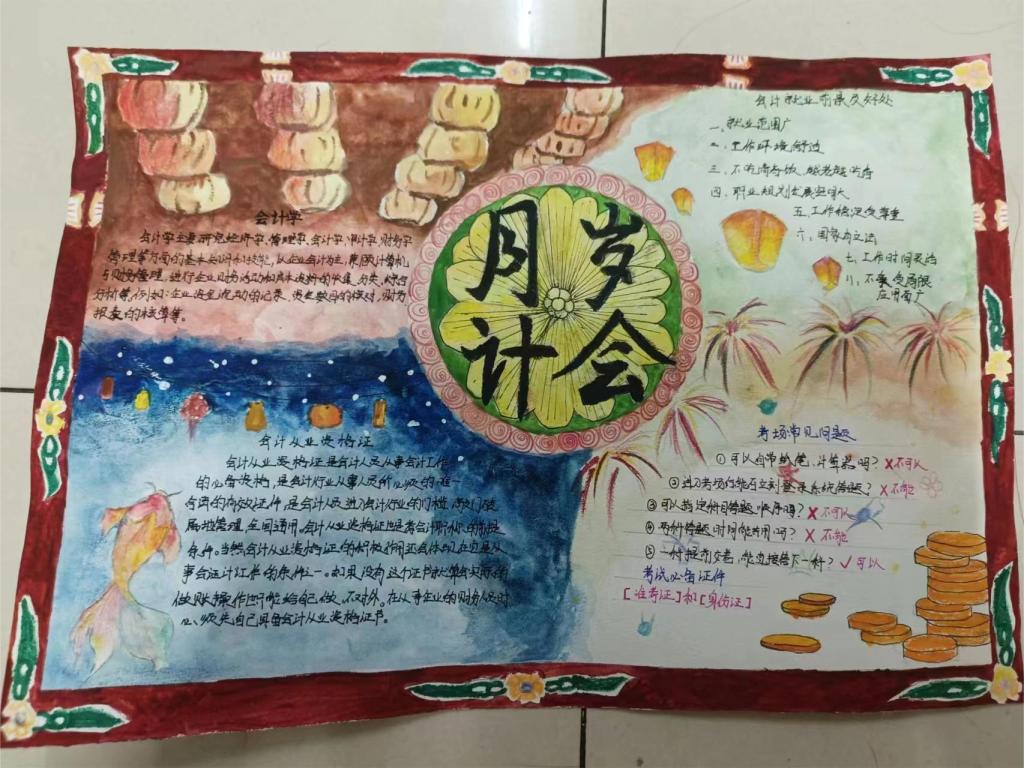 月岁
计会
会计学
会计学主要研究经济学、管理学、会计学、审计学、财务学
管理学等方面的基本知识和技能,以企业会计为主,兼顾计算机
与财务管理,进行企业财务活动和成本资料的收集、分类、综合
分析等,例如:企业资金流动的记录、资老数目的核对,财务
报表的核算等。
会计就业前景及好处
一、就业范围广
二、工作环境舒适
三、不吃青春饭,越老越吃香
四、职业规划发展空间大
五、工作稳定受尊重
六、国家有立法
七、工作时间灵活
八、不受局限
应用面广
会计从业资格证
会计从业资格证是会计人员从事会计工作
的必备资格,是会计行业从事人员所必须的唯一
合法的有效证件,是会计人员进入会计行业的门槛,
属地管理,全国通用,会计从业资格证也是考会计职称的前提
条件。当然会计从业资格证的积极作用还会体现在它是从
事会计工作的条件之一。如果没有这个证书就算会实际的
做账操作也只能给自己做,不对外。在从事企业的财务人员时
必须先自己具备会计从业资格证书。
考场常见问题
①可以自带纸笔,计算器吗?×不可以
②进入考场后能否立刻登录系统答题?×不能
③可以指定科目答题顺序吗?×不可以
④两科答题时间能共用吗?×不能
⑤一科提前交卷,能直接答下一科?✓可以
考试必备证件
[准考证]和[身份证]